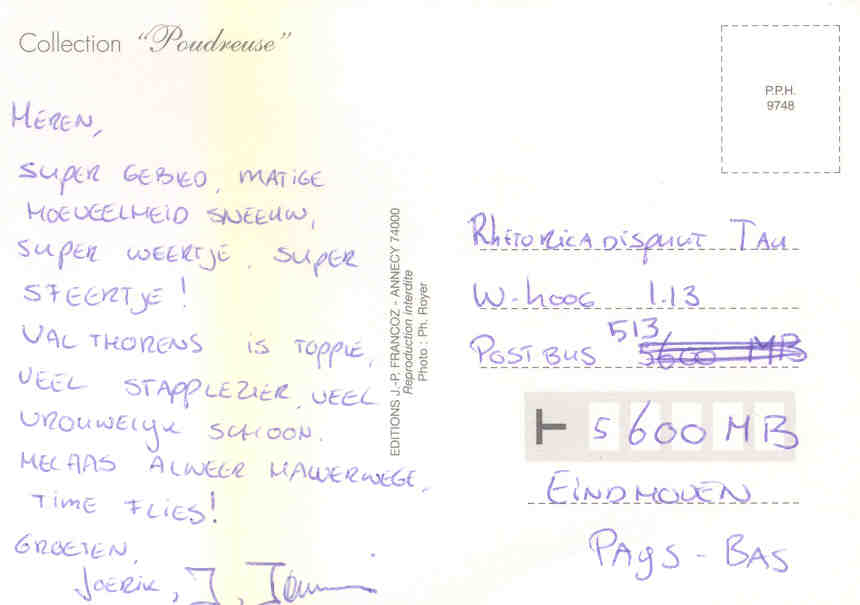 Collection "Poudreuse"
P.P.H.
9748
HEREN,
SUPER GEBIED, MATIGE
HOEVEELHEID SNEEUW,
SUPER WEERTJE. SUPER
SFEERTJE!
VAL THORENS IS TOPPIE,
VEEL STAPPLEZIER, VEEL
VROUWELIJK SCHOON.
HELAAS ALWEER HALVERWEGE,
TIME FLIES!
GROETEN,
JOERIK, J,
EDITIONS J.-P. FRANCOZ - ANNECY 74000
Reproduction interdite
Photo : Ph. Royer
RHETORICA DISPUUT TAU
W-HOOG 1.13
POSTBUS 513
5600 MB
5600 MB
EINDHOVEN
PAYS-BAS